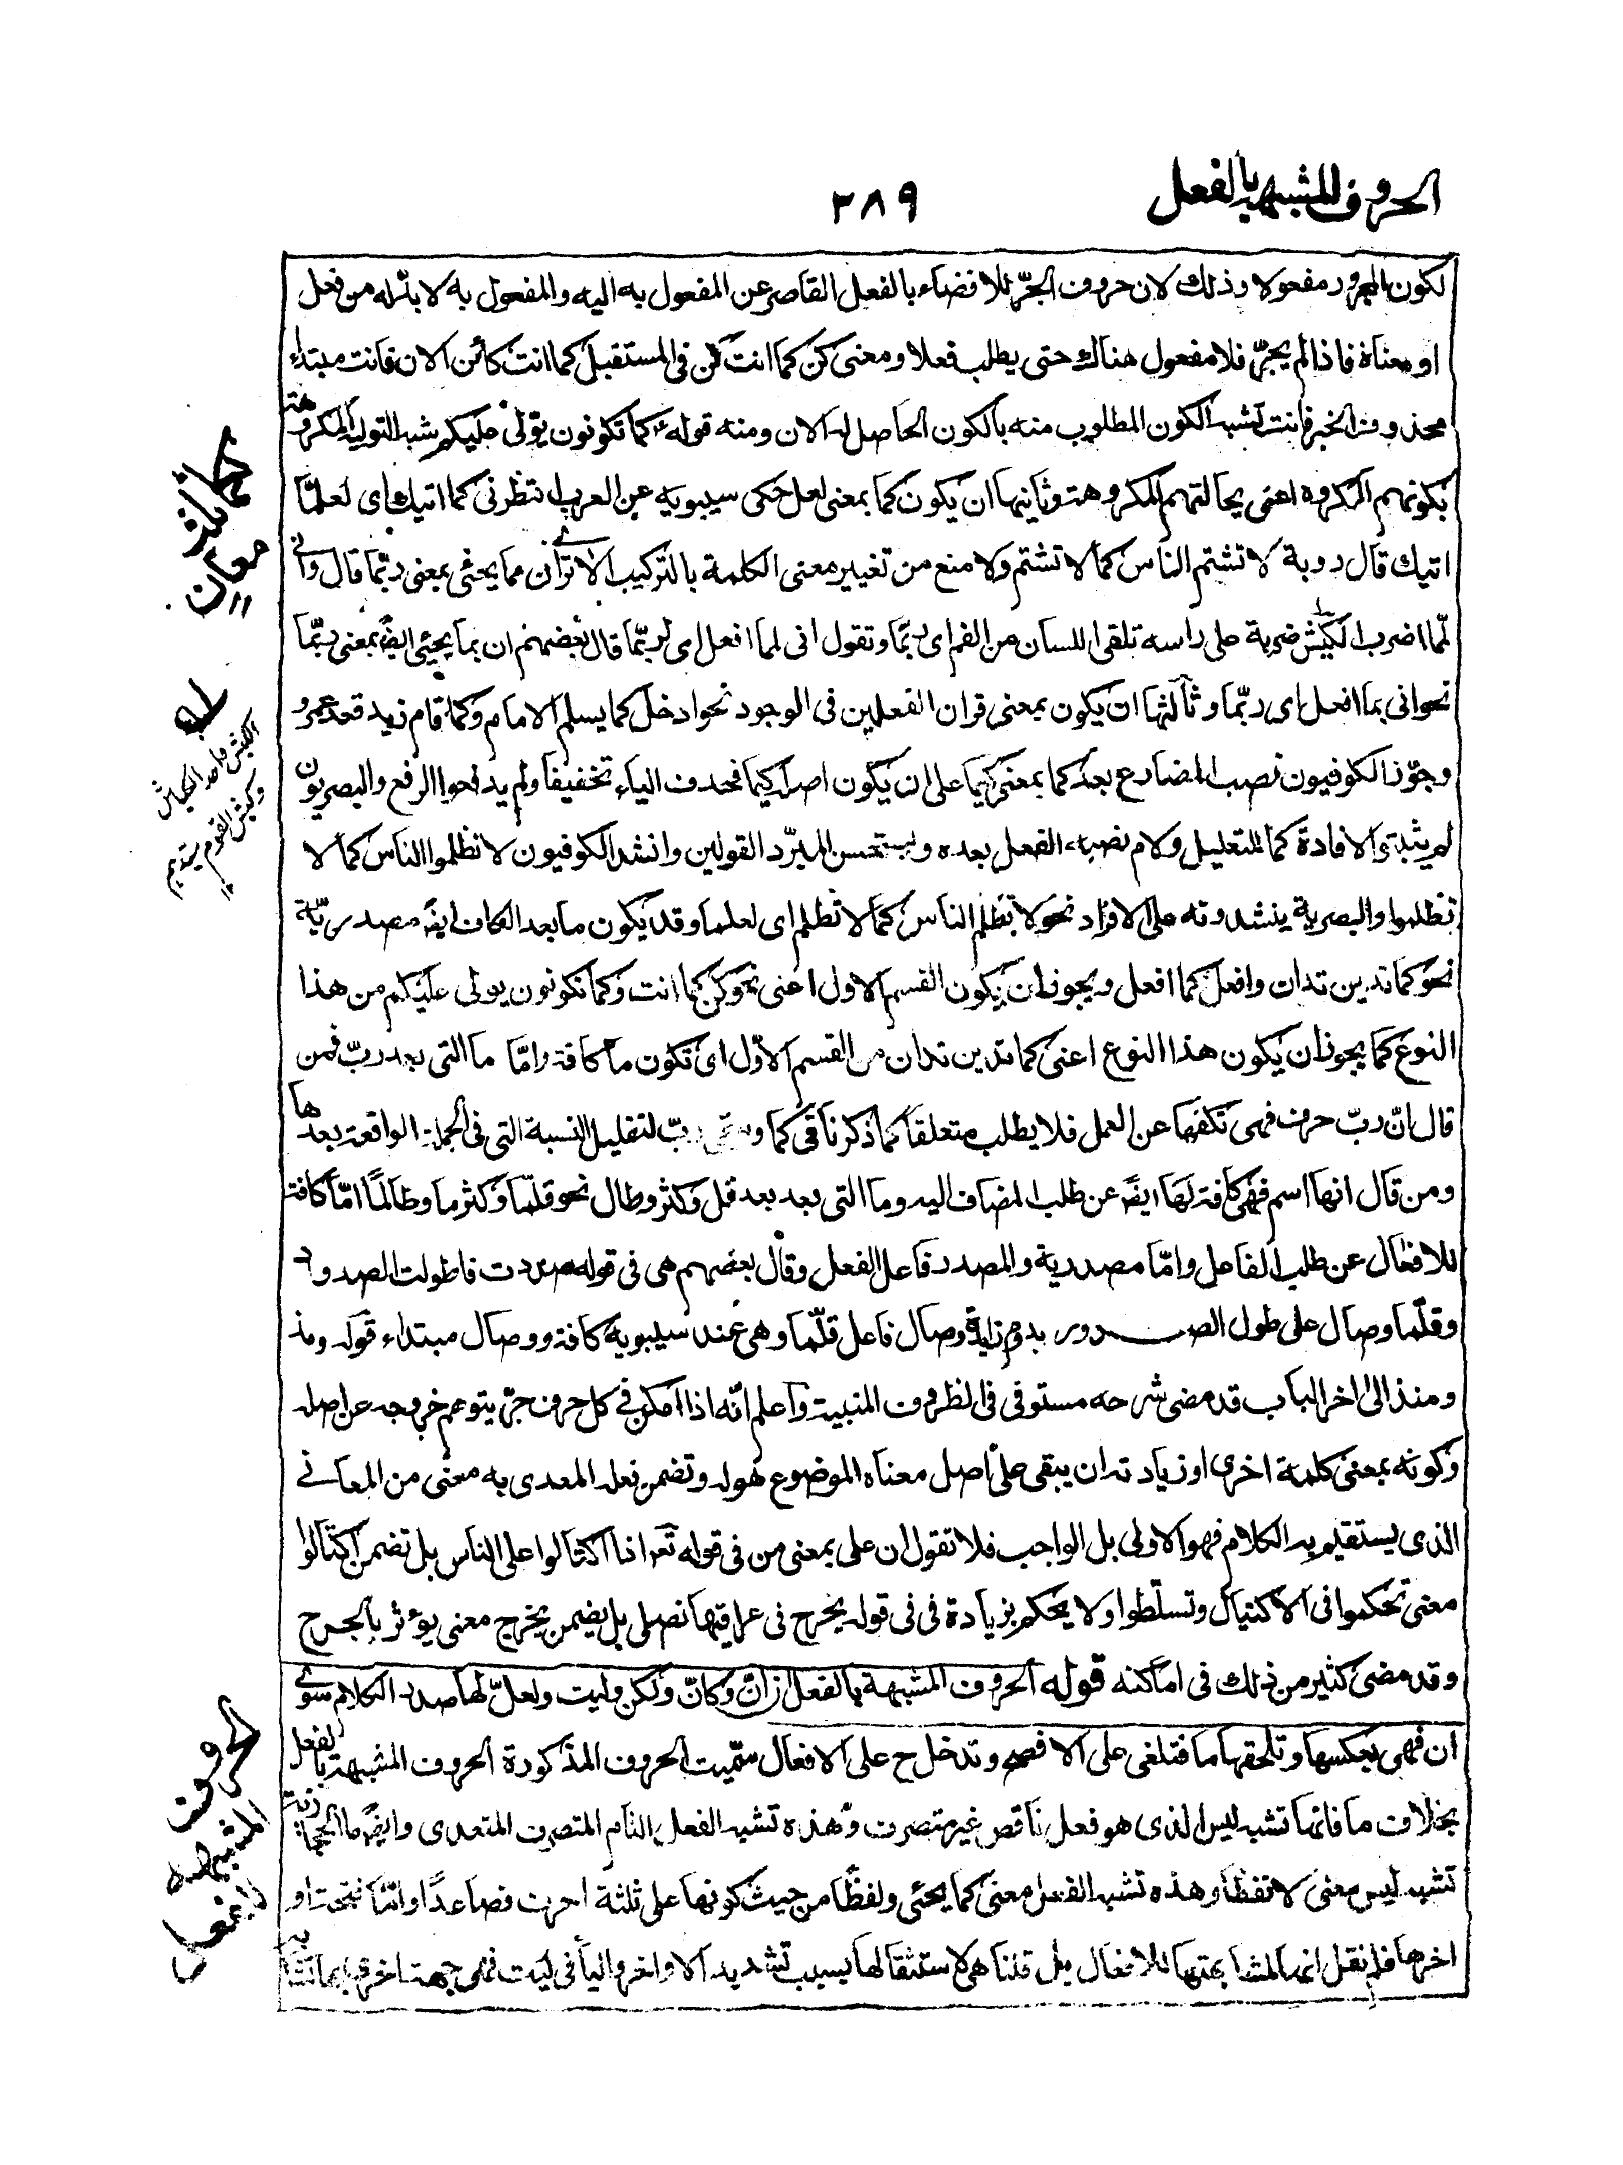 الحروف المشبهة بالفعل
٣٨٩
لكون المجرور مفعولا وذلك لان حروف الجرّ للافضاء بالفعل القاصر عن المفعول به اليه والمفعول به لا بدّ له من فعل
او معناه فاذا لم يجرّ فلا مفعول هناك حتى يطلب فعلا ومعنى كن كما انت كن فى المستقبل كما انت كائن الان فانت مبتداء
محذوف الخبر فانت تشبه الكون المطلوب منه بالكون الحاصل له الان ومنه قوله ع كما تكونون يولى عليكم شبه التولية المكروهة
بكونهم المكروه اعنى بحالتهم المكروهة وثانيها ان يكون كما بمعنى لعل حكى سيبويه عن العرب انتظرنى كما اتيك اى لعلما
اتيك قال روبة لا تشتم الناس كما لا تشتم ولا منع من تغيير معنى الكلمة بالتركيب الا ترى ان مما يجئى بمعنى ربّما قال وانى
لمّا اضرب الكبش ضربة على راسه تلقى اللسان من الفم اى ربّما وتقول انى لما افعل اى لربّما قال بعضهم ان بما يجيئى ايضً بمعنى ربّما
نحو انى بما افعل اى ربّما وثالثها ان يكون بمعنى قران الفعلين فى الوجود نحو ادخل كما يسلم الامام وكما قام زيد قعد عمرو
وجوّز الكوفيون نصب المضارع بعد كما بمعنى كيما على ان يكون اصله كيما فحذف الياء تخفيفا ولم يدفعوا الرفع والبصريون
لم يثبتوا افادة كما للتعليل ولا م نصب الفعل بعده ويستحسن المبرّد القولين وانشد الكوفيون لا تظلموا الناس كما لا
تظلموا والبصرية ينشدونه على الافراد نحو لا تظلم الناس كما لا تظلم اى لعلما وقد يكون ما بعد الكاف ايضً مصدريّة
نحو كما تدين تدان وافعل كما افعل ويجوز ان يكون القسم الاول اعنى نحو كن كما انت وكما تكونون يولى عليكم من هذا
النوع كما يجوز ان يكون هذا النوع اعنى كما تدين تدان من القسم الاوّل اى تكون ما كافة وامّا ما التى بعد ربّ فمن
قال انّ ربّ حرف فهى تكفها عن العمل فلا يطلب متعلقا كما ذكرنا فى كما ربّ لتقليل النسبة التى فى الجملة الواقعة بعدها
ومن قال انها اسم فهى كافة لها ايضً عن طلب المضاف اليه وما التى بعد بعد قل وكثر وطال نحو قلّما وكثر ما وطالما امّا كافة
للافعال عن طلب الفاعل وامّا مصدرية والمصدر فاعل الفعل وقال بعضهم هى فى قوله صددت فاطولت الصدود
وقلّما وصال على طول الصدور يدوم زايدة وصال فاعل قلّما وهى عند سيبويه كافة ووصال مبتداء قوله ومذ
ومنذ الى اخر الباب قد مضى شرحه مستوفى فى الظروف المبنية واعلم انّه اذا امكن فى كل حرف جرّ يتوهم خروجه عن اصله
وكونه بمعنى كلمة اخرى او زيادته ان يبقى على اصل معناه الموضوع هو له وتضمن فعله المعدى به معنى من المعانى
الذى يستقيم به الكلام فهو الاولى بل الواجب فلا تقول ان على بمعنى من فى قوله تعه اذا اكتالوا على الناس بل تضمن اكتالوا
معنى تحكموا فى الاكتيال وتسلّطوا ولا يحكم بزيادة فى فى قوله يجرح فى عراقيبها نصلى بل يضمن يجرح معنى يوءثر بالجرح
وقد مضى كثير من ذلك فى اماكنه قوله الحروف المشبهة بالفعل ان وانّ وكانّ ولكن وليت ولعلّ لها صدر الكلام سوى
ان فهى بعكسها وتلحقها ما فتلغى على الافصح وتدخل ح على الافعال سمّيت الحروف المذكورة الحروف المشبهة بالفعل
بخلاف ما فانها تشبه ليس الذى هو فعل ناقص غير متصرف وهذه تشبه الفعل التام المتصرف المتعدى وايضً ما الحجازية
تشبه ليس معنى لا لفظا وهذه تشبه الفعل معنى كما يجئى ولفظًا من حيث كونها على ثلثة احرف فصاعدًا وامّا فتحت او
اخرها فلم نقل انه لمشابهتها للافعال بل قلنا هى لاستثقالها بسبب تشديد الاواخر والياء فى ليت فهى جهة اخرى بها تشابه
كما ثلث
معان
الكبش واحد الكباش
وكبش القوم سيدهم
الحروف
المشبهة
بالفعل